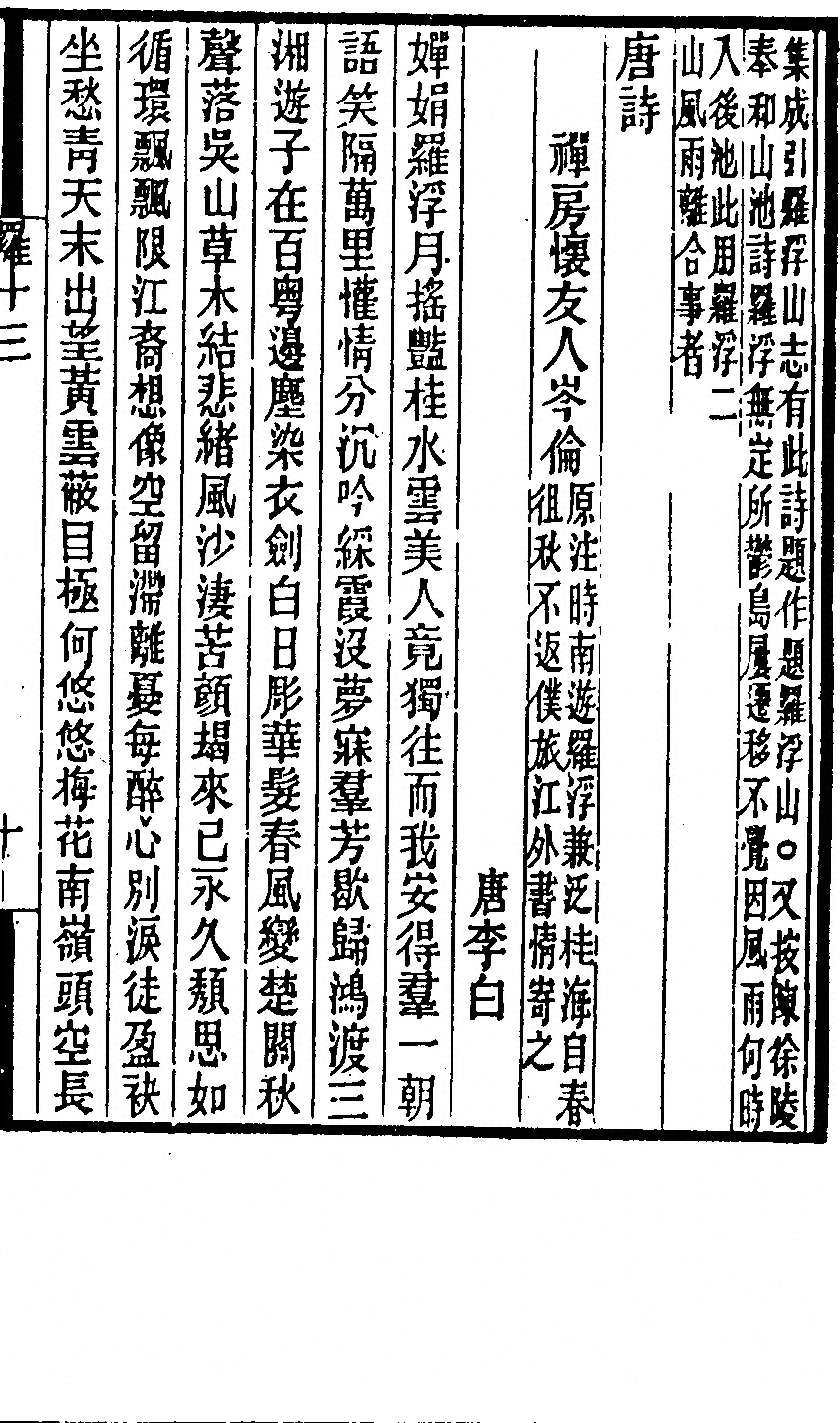 集成引羅浮山志有此詩題作題羅浮山○又按陳徐陵
奉和山池詩羅浮無定所鬱島屢遷移不覺因風雨何時
入後池此用羅浮二
山風雨離合事者
唐詩
禪房懷友人岑倫
原注時南遊羅浮兼泛桂海自春
徂秋不返僕旅江外書情寄之
唐李白
嬋娟羅浮月搖豔桂水雲美人竟獨往而我安得羣一朝
語笑隔萬里懽情分沉吟綵霞沒夢寐羣芳歇歸鴻渡三
湘遊子在百粵邊塵染衣劍白日彫華髮春風變楚關秋
聲落吳山草木結悲緒風沙淒苦顏朅來已永久頹思如
循環飄飄限江裔想像空留滯離憂每醉心別淚徒盈袂
坐愁青天末出望黃雲蔽目極何悠悠梅花南嶺頭空長
羅十三
十一